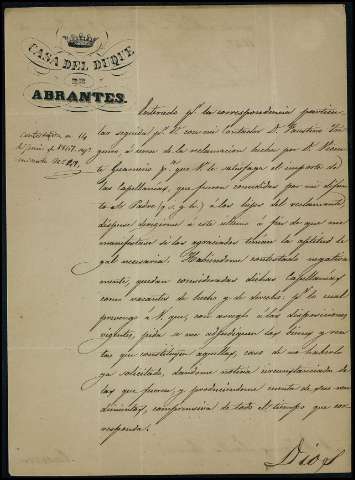 CASA DEL DUQUE
DE
ABRANTES.
Contestada en 14
de Junio de 1847. 
con nota Nº
Enterado pr. la correspondencia particu-
lar seguida pr. V. con mi Contador D. Faustino
á causa de la reclamacion hecha por D. Vicen-
te pa. que V. le satisfaga el importe de
las Capellanias, que fueron concedidas por mi difun-
to Sr. Padre (q. s. g. h.) á los hijos del reclamante,
dispuse dirigirme á este ultimo á fin de que me
manifestase si los agraciados tenian la aptitud le-
gal necesaria. Habiendome contestado negativa-
mente, quedan consideradas dichas Capellanias
como vacantes de hecho y de derecho: pr. lo cual
prevengo á V. que, con arreglo á las disposiciones
vigentes, pida se me adjudiquen los bienes y ren-
tas que constituyen aquellas, caso de no haberlo
ya solicitado, dandome noticia circunstanciada de
las que fueren, y produciendome cuenta de sus ren-
dimientos, comprensiva de todo el tiempo que cor-
responda.
Dios